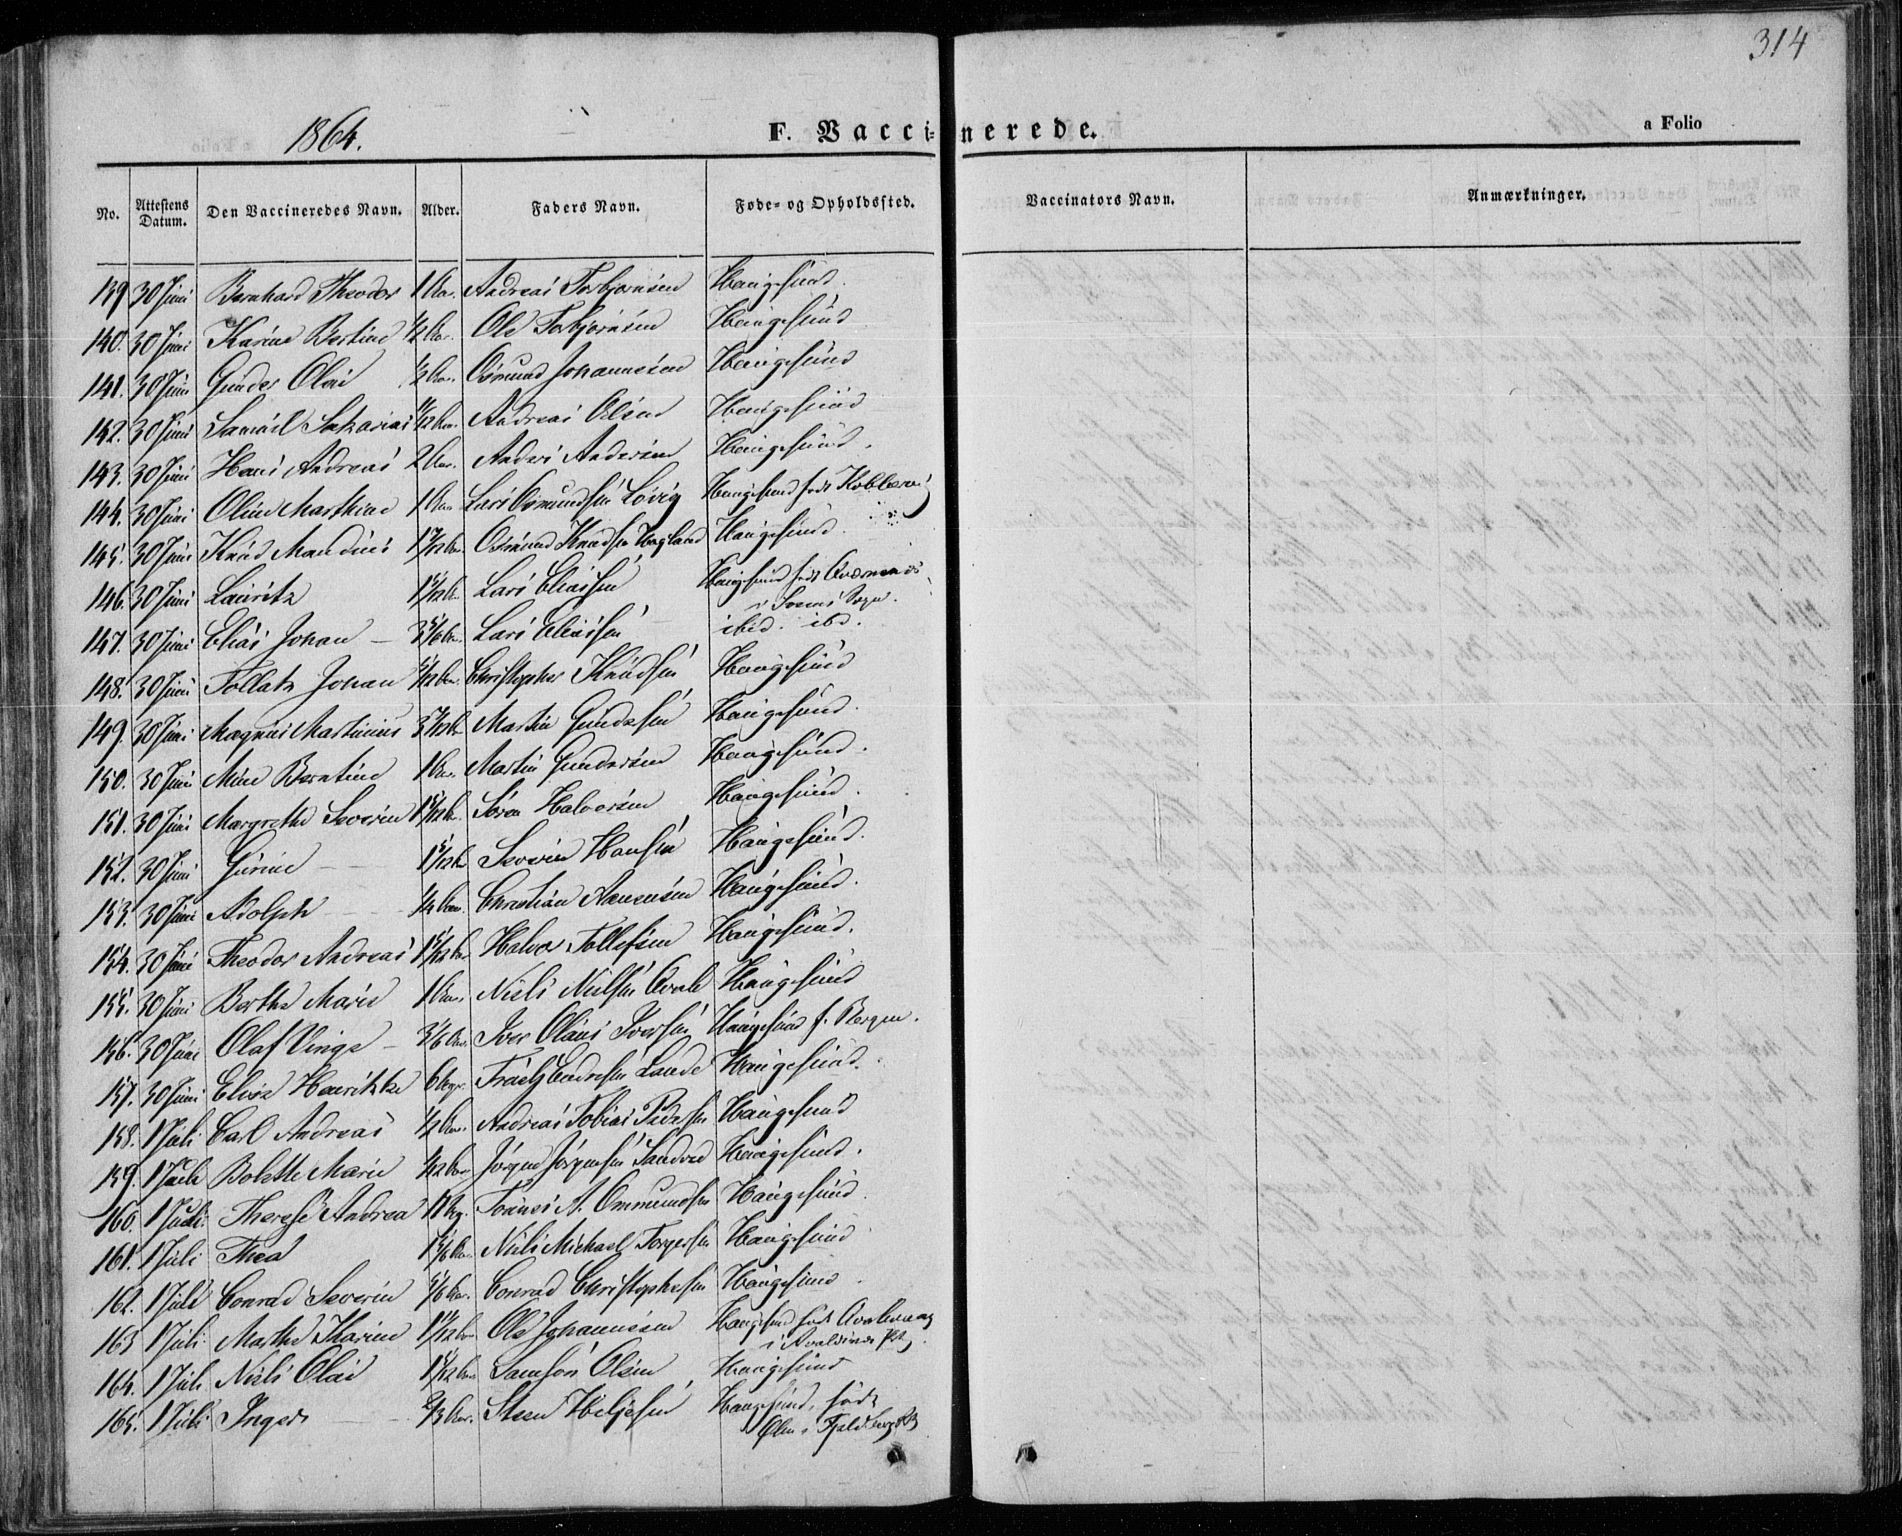 314
1864.
F. Vaccinerede.
a Folio
No. Attestens Datum. Den Vaccineredes Navn. Alder. Faders Navn. Føde- og Opholdssted. Vaccinators Navn. Anmærkninger.
139. 30 Juni Bernhard Theodor 1 Aar. Andreas Torbjørnsen Haugesund.
140. 30 Juni Karine Bertine 1/2 Aar. Ole Torbjørnsen Haugesund
141. 30 Juni Gunder Olai 1/2 Aar. Osmund Johannesen Haugesund
142. 30 Juni Samuel Sakarias Andreas Olsen Haugesund
143. 30 Juni Hans Andreas 2 Aar. Anders Andersen Haugesund.
144. 30 Juni Oline Marthine 1 Aar Lars Osmundsen Løvig Haugesund født
145. 30 Juni Knud Mandius 1 7/12 Aar Osmund Knudsen Hagland Haugesund.
146. 30 Juni Lauritz 1 5/12 Lars Eliassen Haugesund født
i Sveens Sogn.
147. 30 Juni Elias Johan — 3 5/6 Aar. Lars Eliassen ibid. ibd.
148. 30 Juni Tollak Johan Christopher Knudsen Haugesund
149. 30 Juni Magnus Martinius Martin Gundersen Haugesund.
150. 30 Juni Mine Berntine 1 Aar. Martin Gundersen Haugesund.
151. 30 Juni Margrethe Severine Søren Halvorsen Haugesund.
152. 30 Juni Gurine — Severin Hansen Haugesund.
153. 30 Juni Adolph 1/4 Aar. Christian Aanensen Haugesund.
154. 30 Juni Theodor Andreas 1 5/12 Aar Halvor Tollefsen Haugesund.
155. 30 Juni Berthe Marie 1 Aar. Niels Nielsen Haugesund
156. 30 Juni Olaf Vinge — 3/6 Aar. Iver Olaus Iversen Haugesund f. Bergen.
157. 30 Juni Elise Henrikke 6 Uger. Endresen Lande Haugesund.
158. 1 Juli Carl Andreas 1/2 Aar. Andreas Tobias Pedersen Haugesund
159. 1 Juli Bolette Marie Jørgen Jørgensen Sandved Haugesund.
160. 1 Juli. Therese Andrea Tønnes A. Ommundsen Haugesund.
161. 1 Juli Thea 1 5/6 Aar. Niels Michael Torgersen Haugesund
162. 1 Juli Conrad Severin 5/6 Aar. Conrad Christophersen Haugesund.
163 1 Juli. Marthe Karine 1 11/12 Ole Johannesen Haugesund født
i Avaldsnes Pgj.
164. 1 Juli Niels Olai Samson Olsen Haugesund
165. 1 Juli. Inger — 2/3 Aar. Steen Heljesen Haugesund, født
Ølen i Fjeldberg